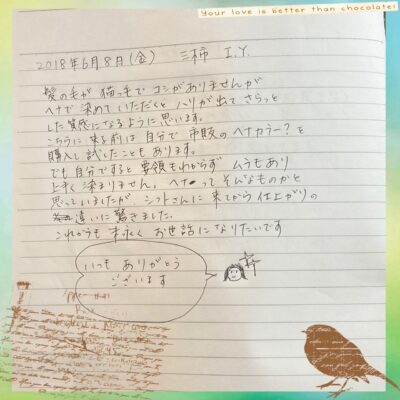 Your love is better than chocolate!
2018年6月8日(金) 三柿 I.Y.
髪の毛が猫っ毛でコシがありませんが
ヘナで染めていただくとハリが出てさらっと
した質感になるように思います。
こちらに来る前は自分で市販のヘナカラー?を
購入し試したこともあります。
でも自分ですると要領もわからずムラもあり
上手く染まりません。ヘナってそんなものかと
思っていましたがシフトさんに来てから仕上がりの
違いに驚きました。
これからも末永くお世話になりたいです
いつもありがとう
ございます